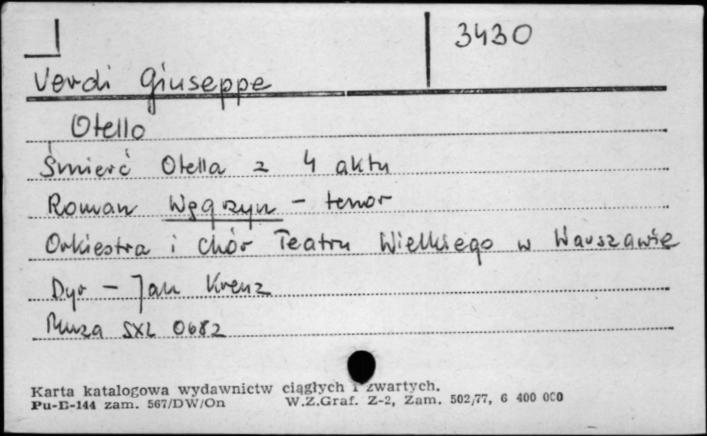 3430
Verdi Giuseppe
Otello
Śmierć Otella z 4 aktu
Roman Węgrzyn - tenor
Orkiestra i chór Teatru Wielkiego w Warszawie
Dyr - Jan Krenz
Muza SXL 0682
Karta katalogowa wydawnictw ciągłych i zwartych.
Pu-B-144 zam. 567/DW/On W.Z.Graf. Z-2, Zam. 502/77, 6 400 000